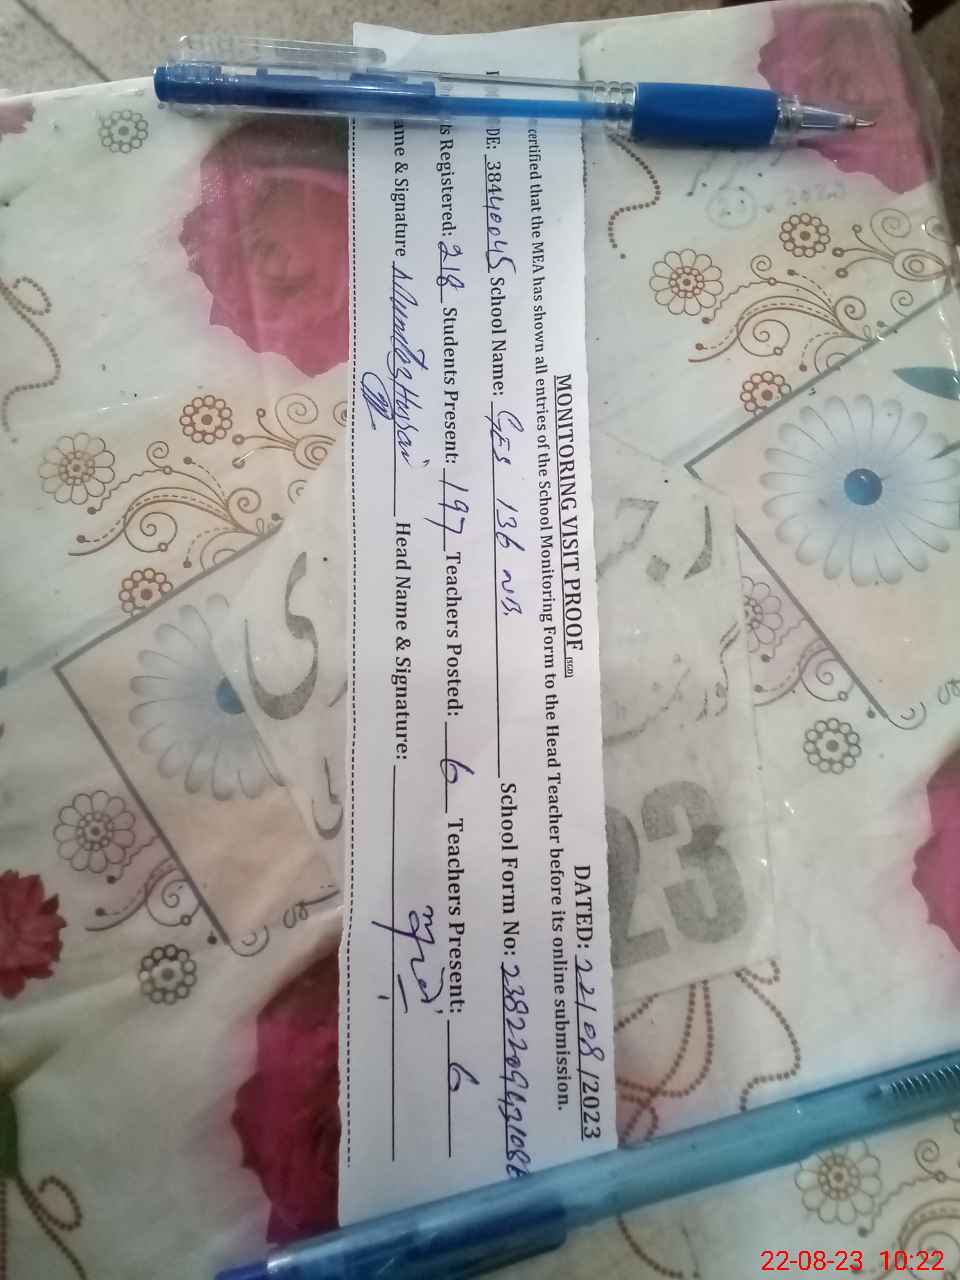 MONITORING VISIT PROOF (SGD) DATED: 22/08/2023
certified that the MEA has shown all entries of the School Monitoring Form to the Head Teacher before its online submission.
DE: 38440045 School Name: GES 136 NB. School Form No:
ts Registered: 218 Students Present: 197 Teachers Posted: 6 Teachers Present: 6
ame & Signature Mumtaz Husain Head Name & Signature:
23
22-08-23 10:22